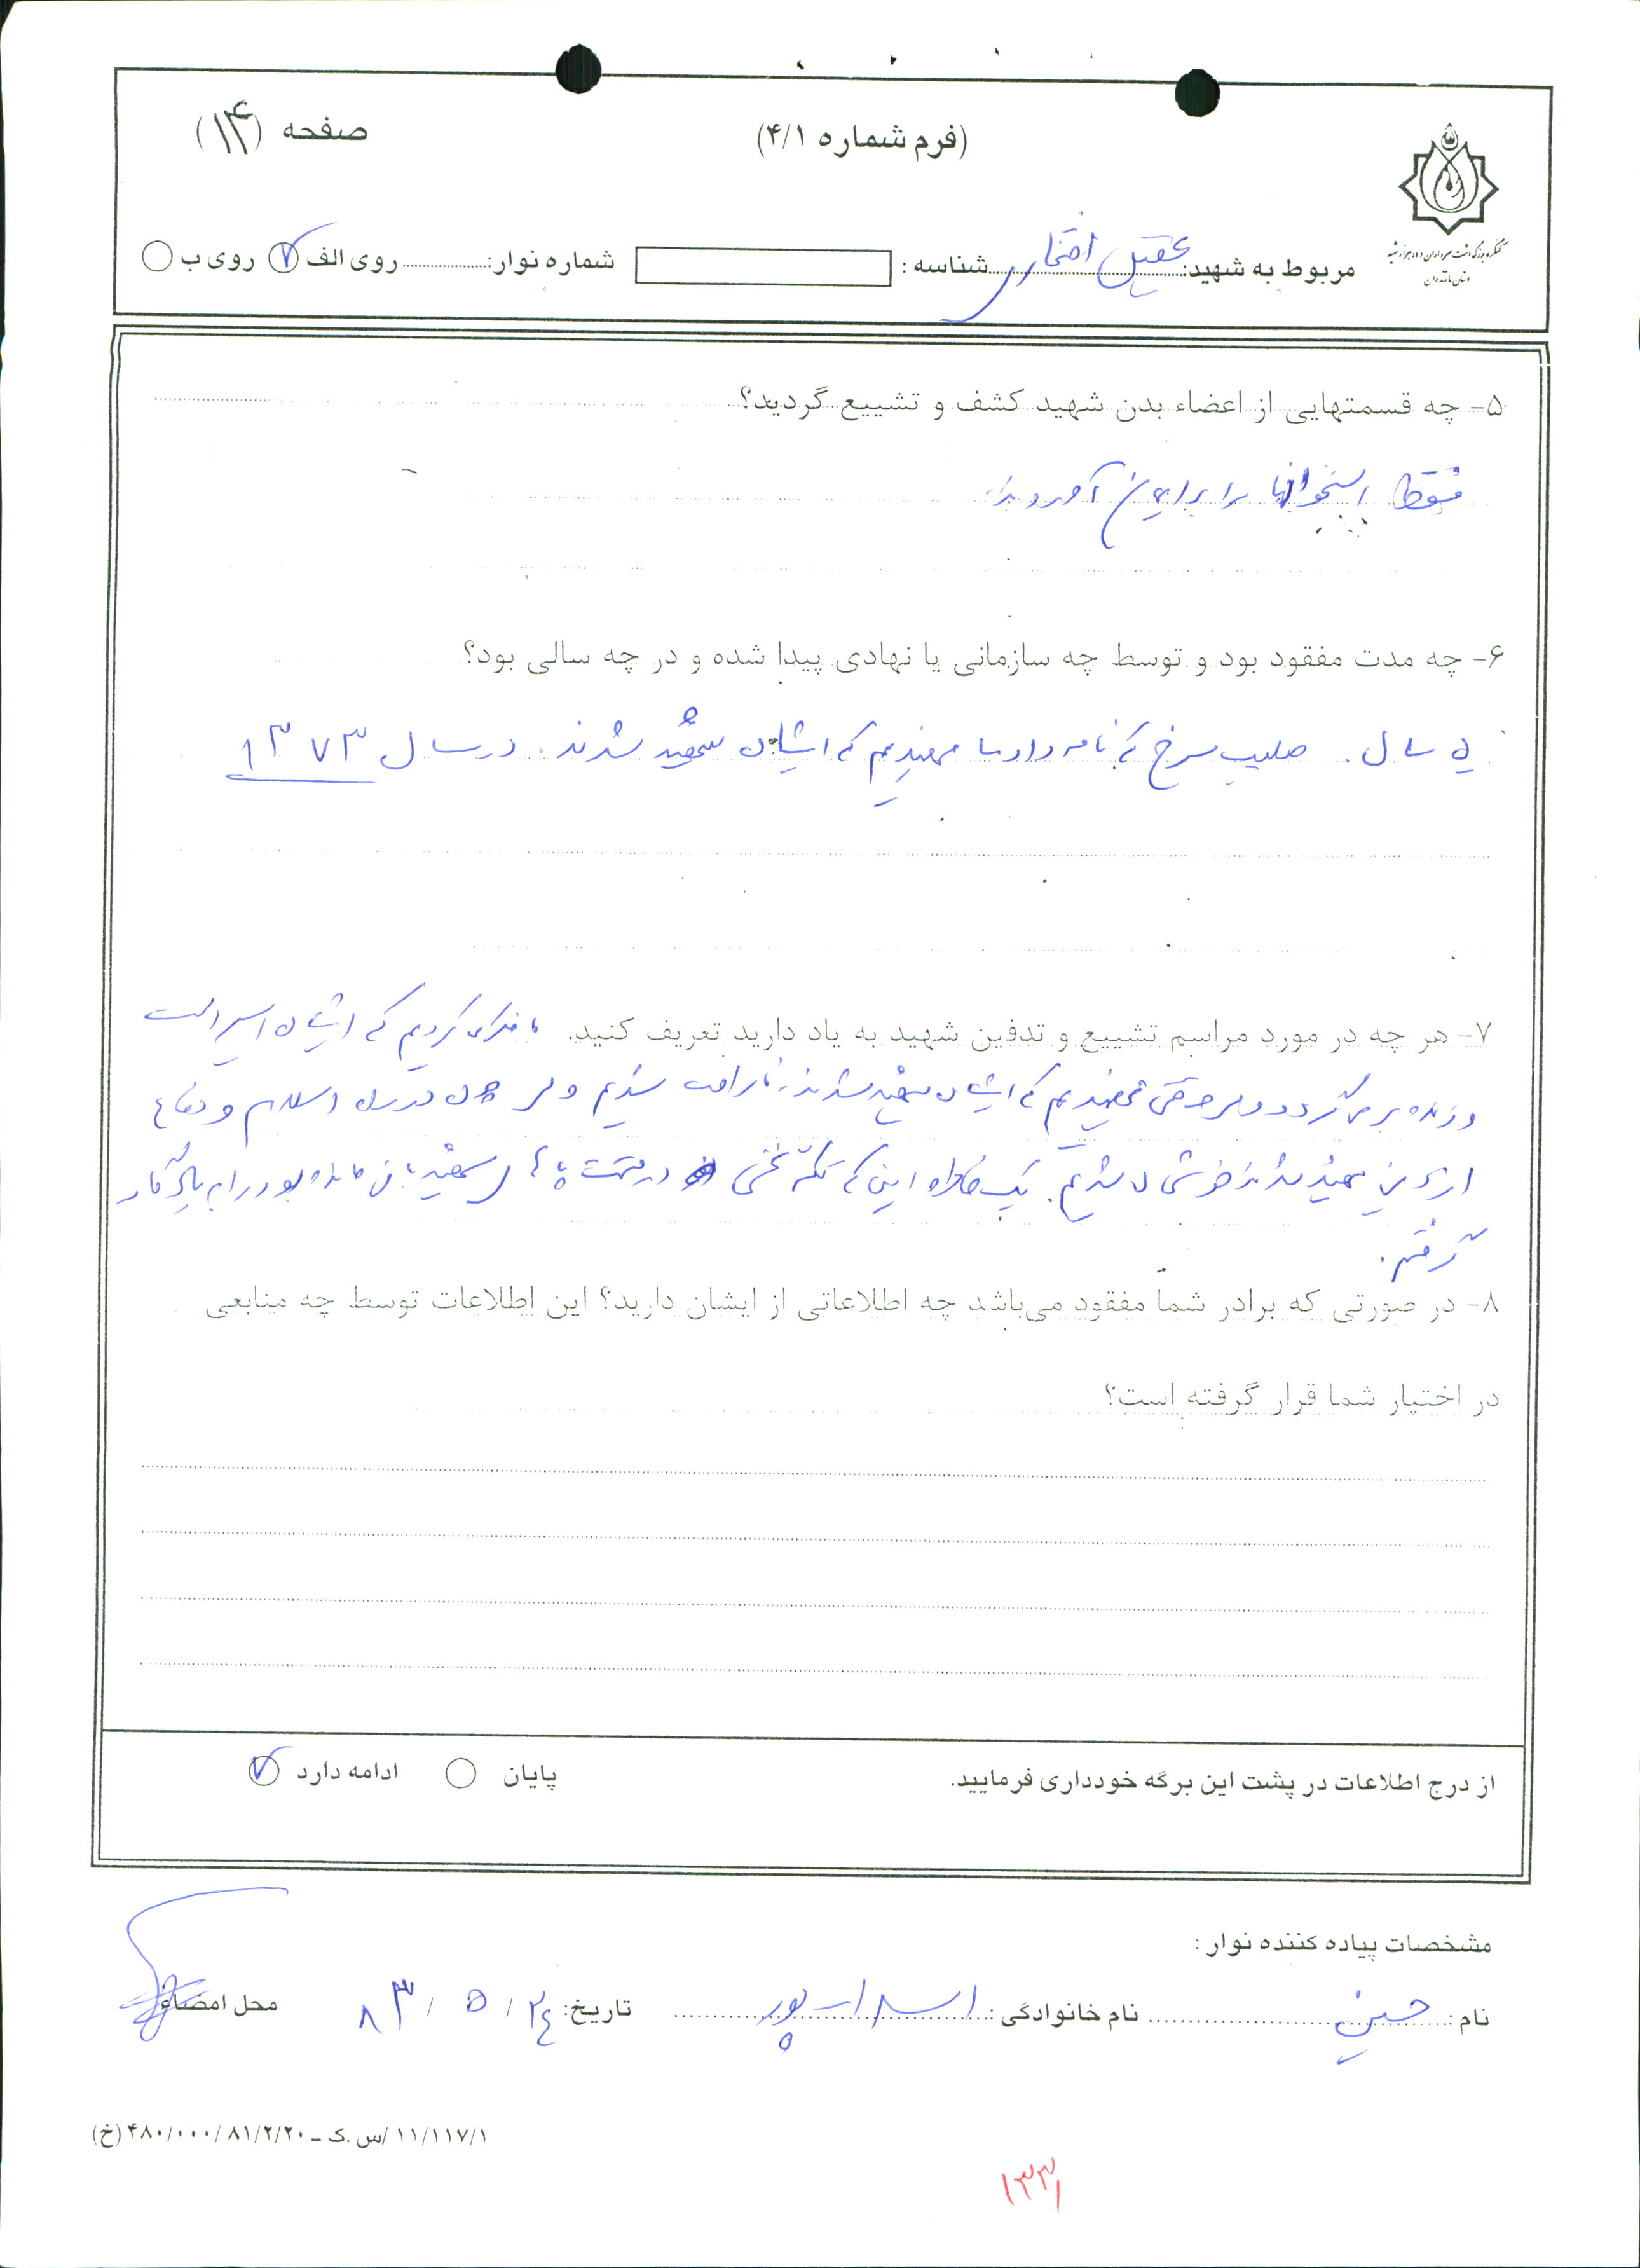 (فرم شماره ۴/۱)
صفحه (۱۴)
کنگره بزرگداشت سرداران و ده هزار شهید
استان مازندران
مربوط به شهید: عقیل افتخاری شناسه: شماره نوار: روی الف روی ب
۵- چه قسمتهایی از اعضاء بدن شهید کشف و تشییع گردید؟
فقط استخوانها را برایمان آوردند.
۶- چه مدت مفقود بود و توسط چه سازمانی یا نهادی پیدا شده و در چه سالی بود؟
سال. صلیب سرخ که نامه داد ما فهمیدیم که ایشان شهید شدند. در سال ۱۳۷۳
۷- هر چه در مورد مراسم تشییع و تدفین شهید به یاد دارید تعریف کنید. ما فکر می کردیم که ایشان اسیر است
و زنده بر می گردد ولی وقتی فهمیدیم که ایشان شهید شدند ناراحت شدیم ولی چون در راه اسلام و دفاع
از میهن شهید شدند خوشحال شدیم. یک خاطره این که تکه نخی در قسمت پای شهید باقی مانده بود را به یادگار
گرفتم.
۸- در صورتی که برادر شما مفقود می‌باشد چه اطلاعاتی از ایشان دارید؟ این اطلاعات توسط چه منابعی
در اختیار شما قرار گرفته است؟
از درج اطلاعات در پشت این برگه خودداری فرمایید. پایان ادامه دارد
مشخصات پیاده کننده نوار:
نام: حسین نام خانوادگی: تاریخ: ۲۴ / ۵ / ۸۳ محل امضاء
۱۱/۱۱۷/۱ /س.ک - ۴۸۰/۰۰۰/۸۱/۲/۲۰ (خ)
۱۳۳